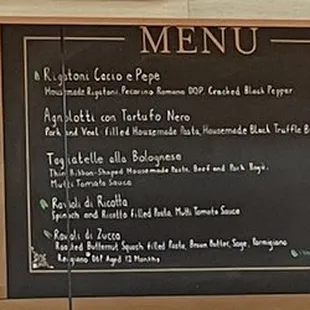 MENU
Rigatoni Cacio e Pepe
Housemade Rigatoni, Pecorino Romano DOP, Cracked Black Pepper
Agnolotti con Tartufo Nero
Pork and Veal filled Housemade Pasta, Housemade Black Truffle B
Tagliatelle alla Bolognese
Thin Ribbon-Shaped Housemade Pasta, Beef and Pork Ragù,
Mutti Tomato Sauce
Ravioli di Ricotta
Spinach and Ricotta filled Pasta, Mutti Tomato Sauce
Ravioli di Zucca
Roasted Butternut Squash filled Pasta, Brown Butter, Sage, Parmigiano
Reggiano DOP Aged 12 Months